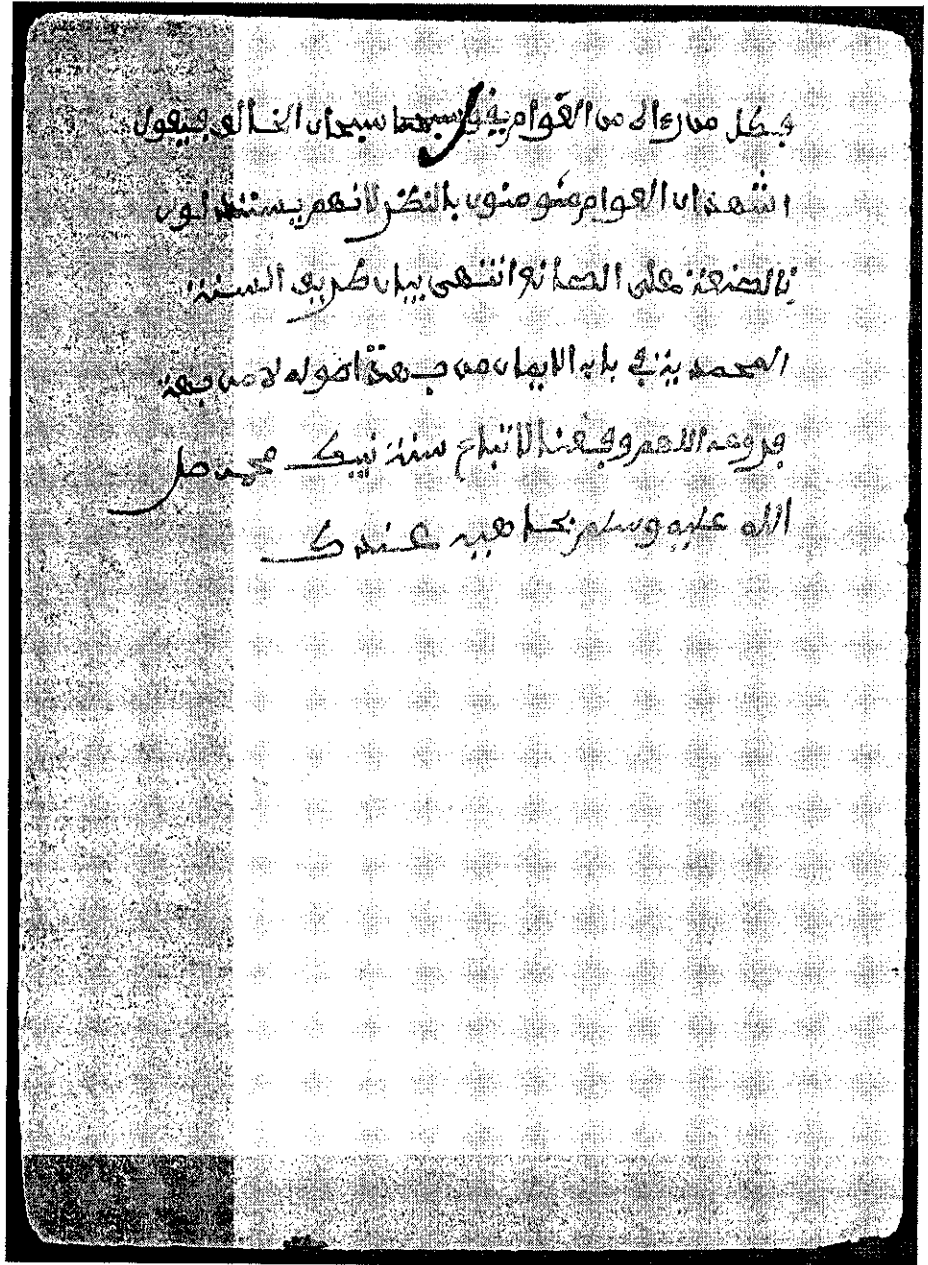 فكل من رءاه من العوام يقول سبحان الخالق فيقول
اشهد ان العوام مومنون بالنظر لانهم يستدلون
بالصنعة على الصانع انتهى بيان طريق السنة
المحمدية في باب الايمان من جهة اصوله لا من جهة
فروعه اللهم وفقنا لاتباع سنة نبيك محمد صلى
الله عليه وسلم بجاهه عندك